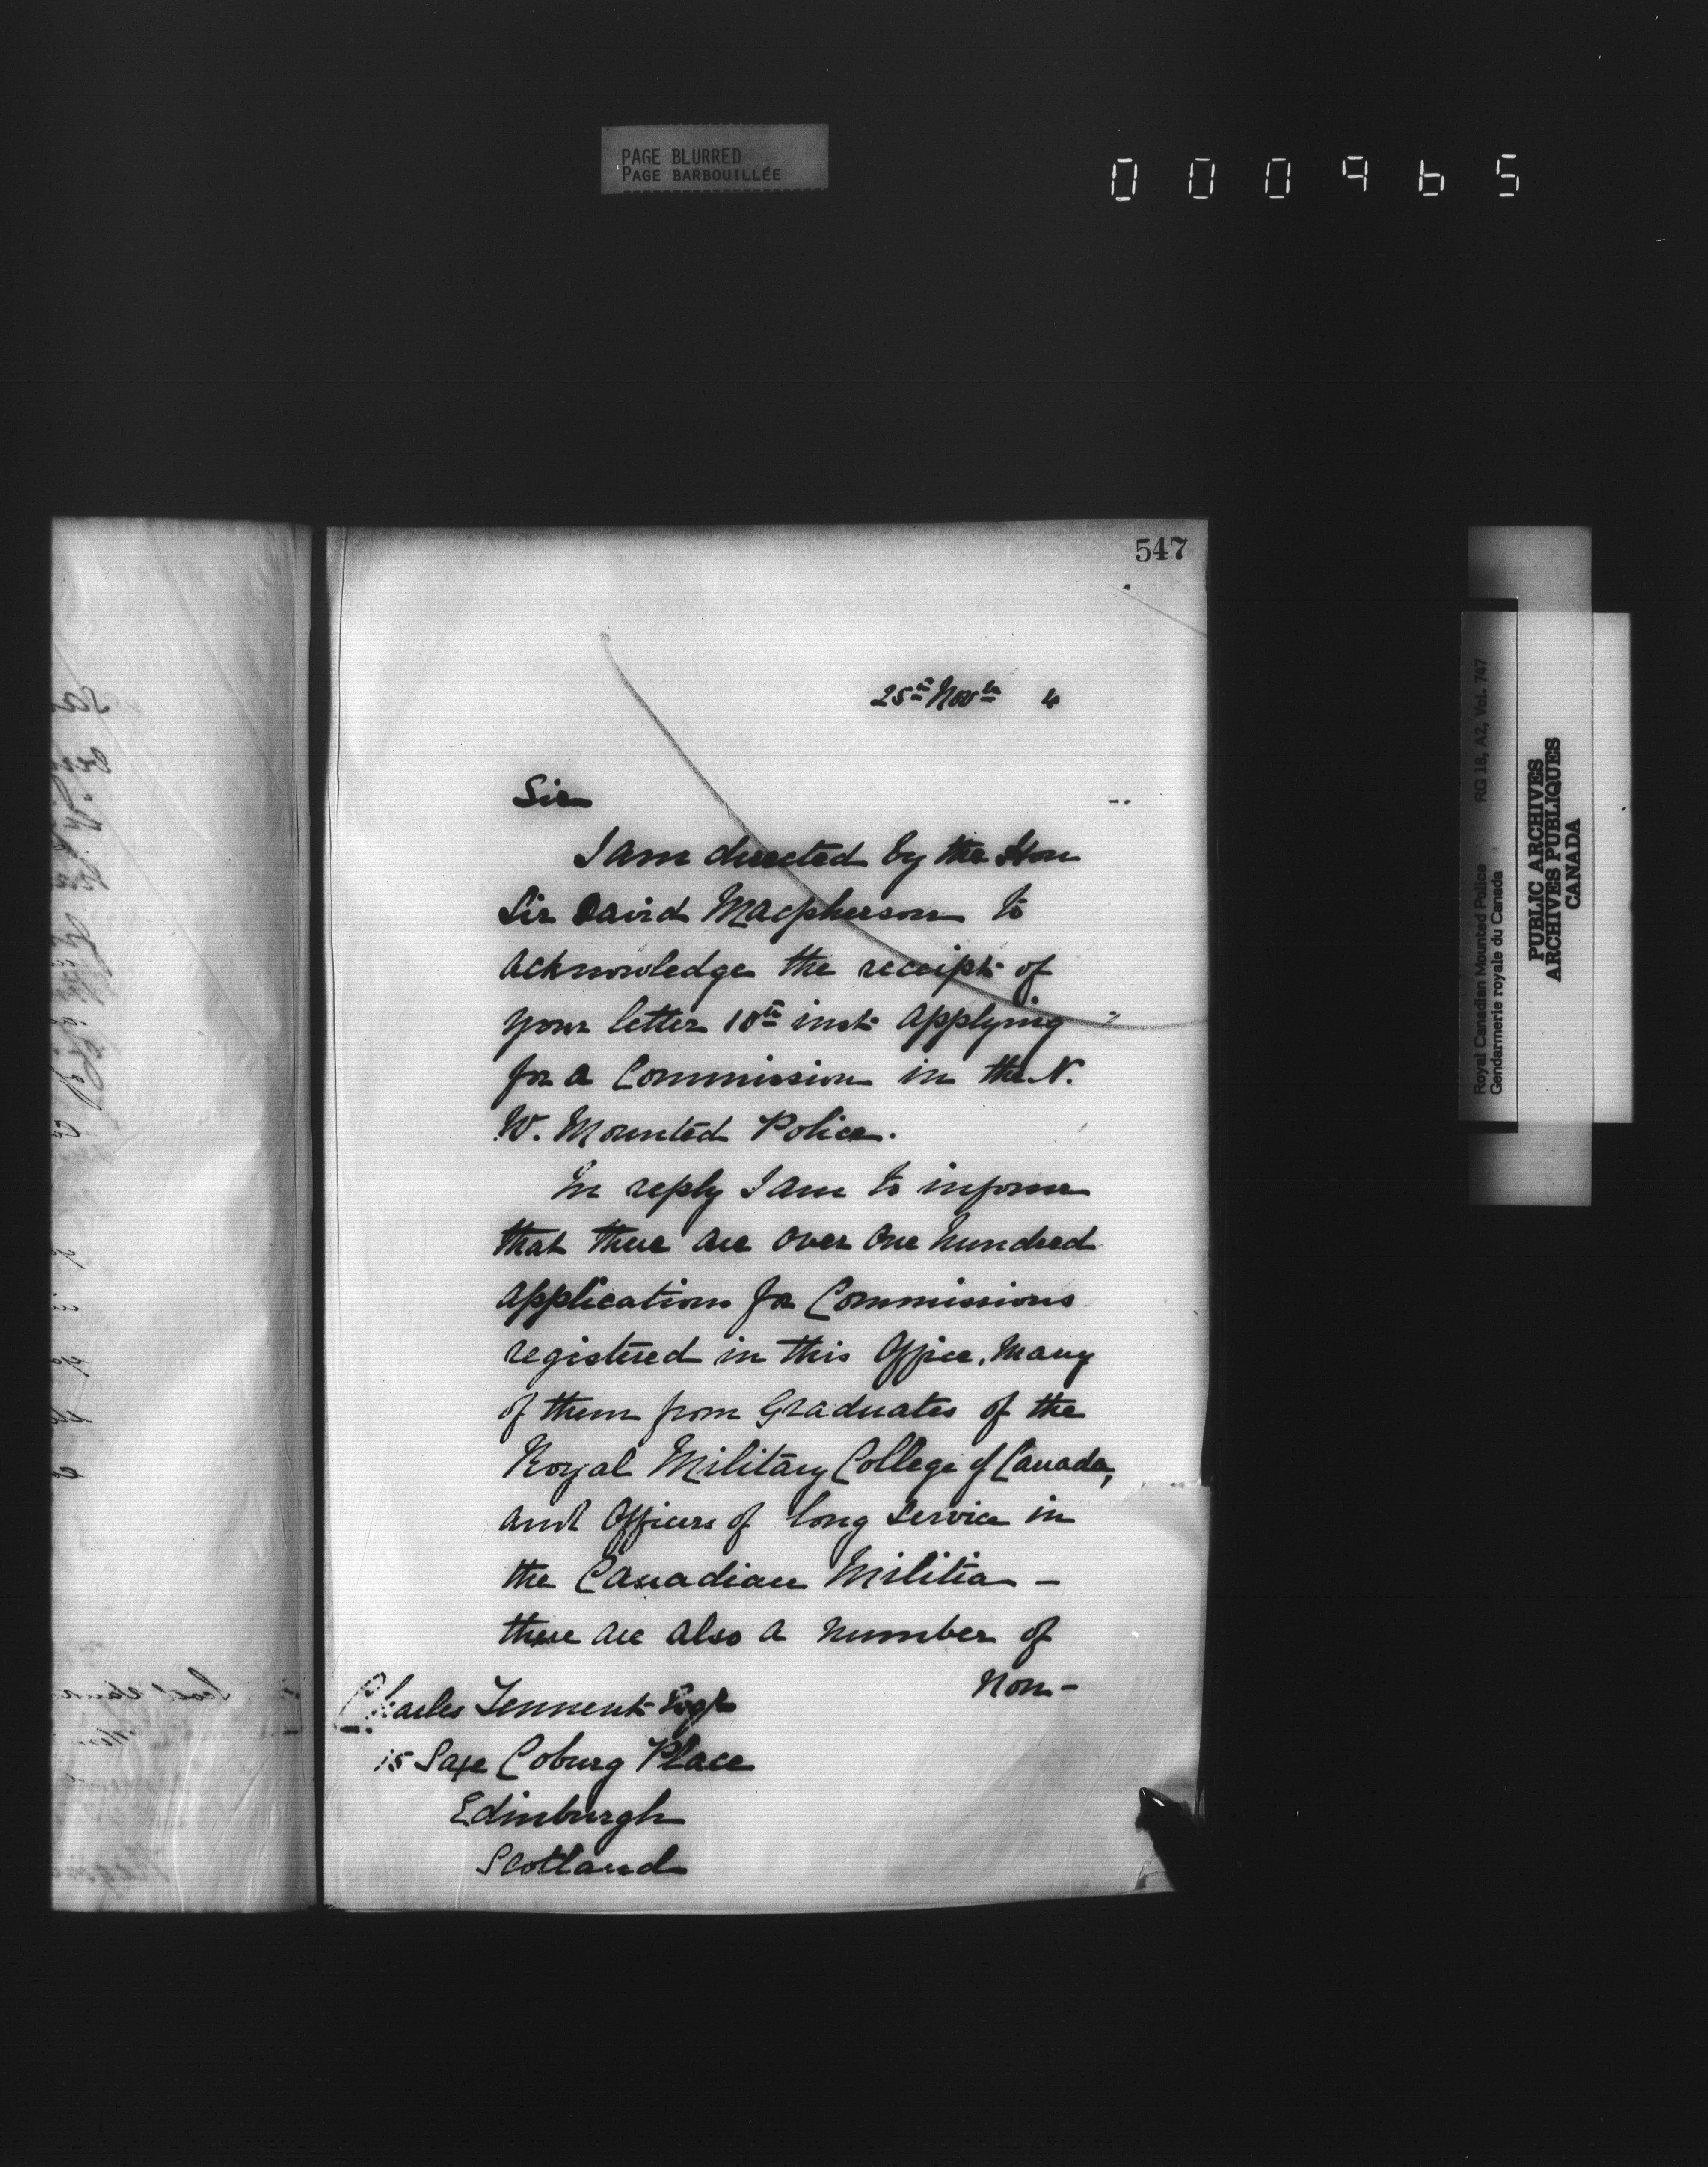 PAGE BLURRED
PAGE BARBOUILLÉE
000965
547
25th Novr 4
Sir
I am directed by the Hon
Sir David Macpherson to
acknowledge the receipt of
your letter 10th inst applying
for a Commission in the N.
W. Mounted Police.
In reply I am to inform
that there are over one hundred
applications for Commissions
registered in this Office, many
of them from Graduates of the
Royal Military College of Canada,
and Officers of long service in
the Canadian Militia –
there are also a number of
Non-
Charles Tennent Esqr
15 Saxe Coburg Place
Edinburgh
Scotland
Royal Canadian Mounted Police RG 18, A2, Vol. 747
Gendarmerie royale du Canada
PUBLIC ARCHIVES
ARCHIVES PUBLIQUES
CANADA